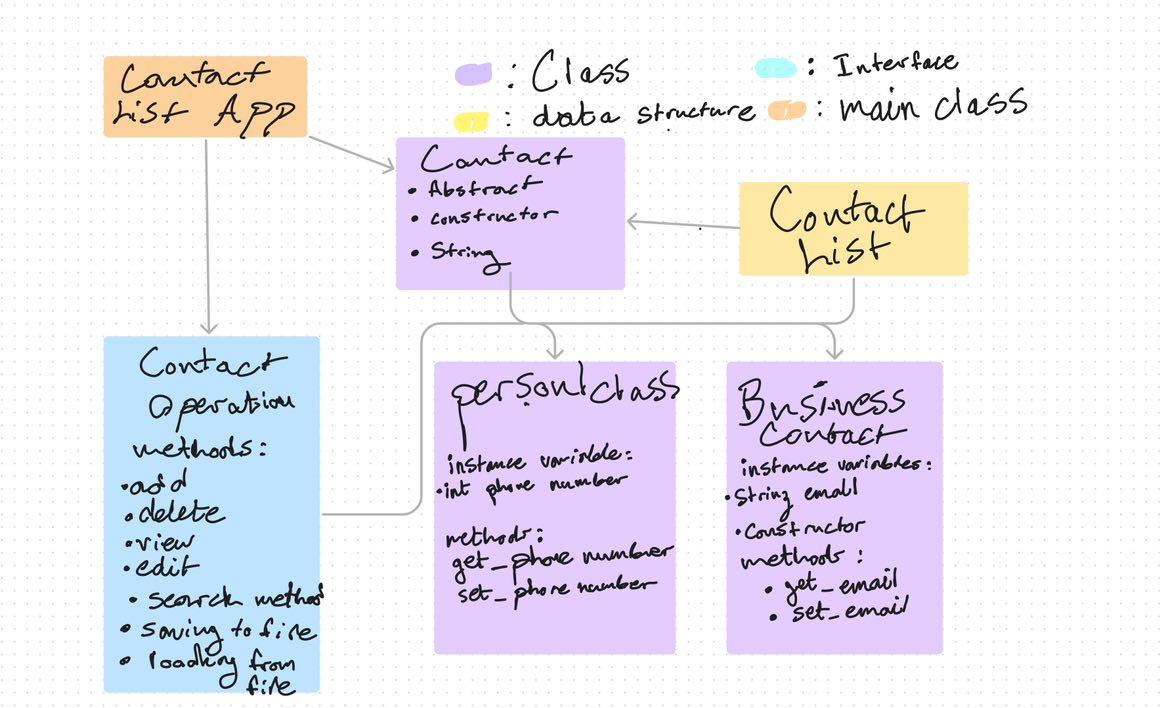 Contact
List App
: Class
: Interface
: data structure
: main class
Contact
• Abstract
• constructor
• String
Contact
List
Contact
Operation
methods:
• add
• delete
• view
• edit
• search method
• saving to file
• loading from
file
personl class
instance variable:
• int phone number
methods:
get_phone number
set_phone number
Business
Contact
instance variables:
• String email
• Constructor
methods:
• get_email
• set_email